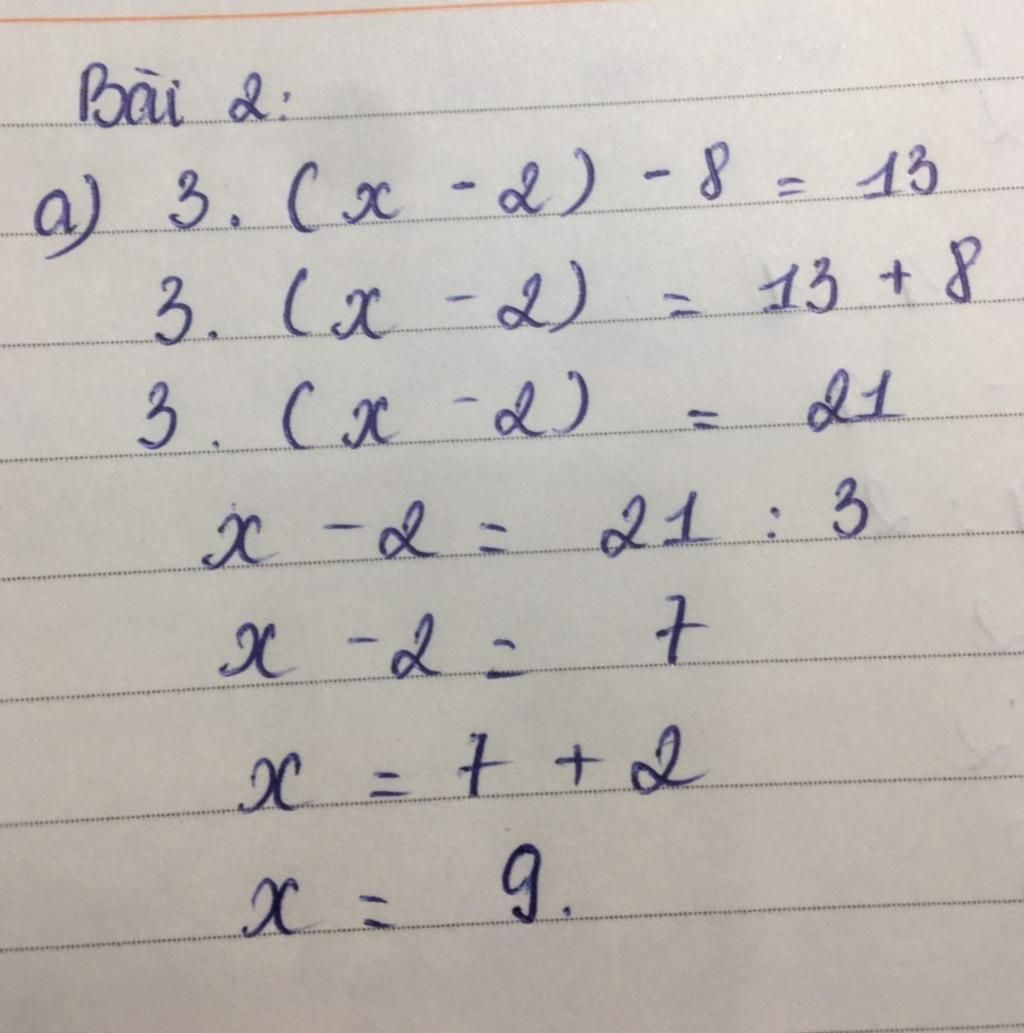 Bài 2:
a) 3. (x - 2) - 8 = 13
3. (x - 2) = 13 + 8
3. (x - 2) = 21
x - 2 = 21 : 3
x - 2 = 7
x = 7 + 2
x = 9.